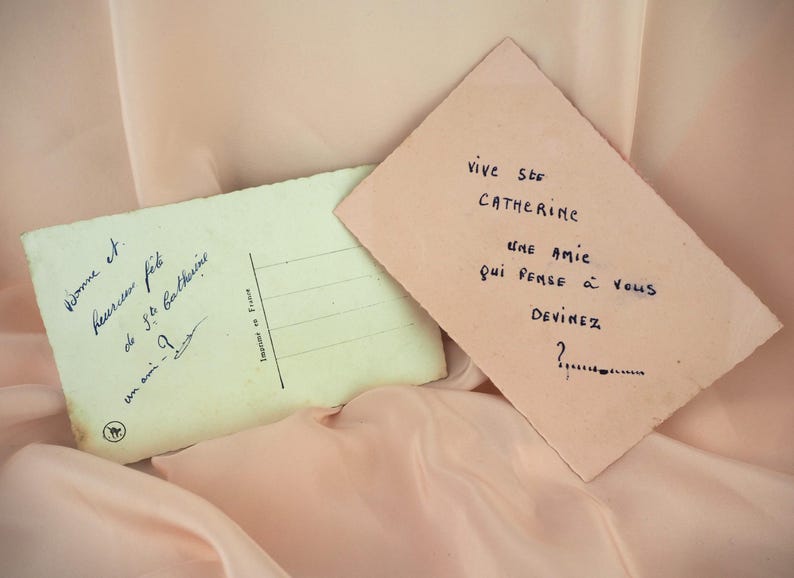 Bonne et
heureuse fête
de Ste Catherine
un ami - ?
Imprimé en France
Vive Ste
CATHERINE
UNE AMIE
QUI PENSE à VOUS
DEVINEZ
?